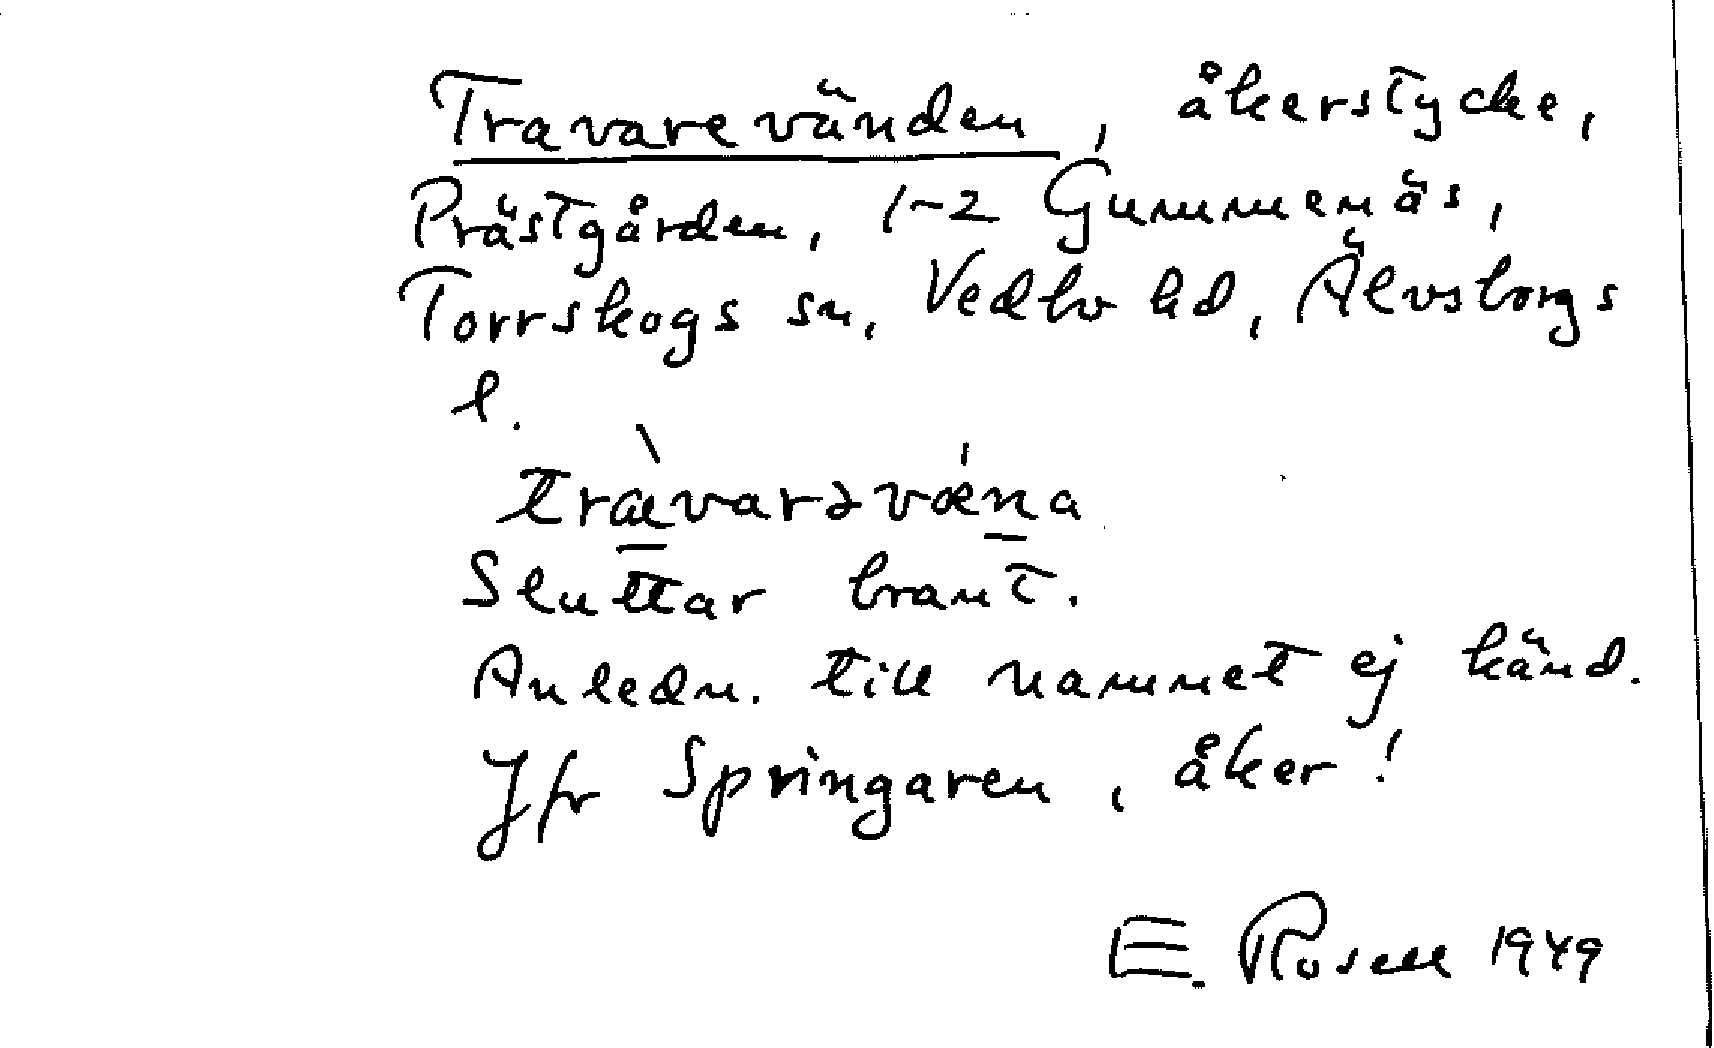 Travarevänden, åkerstycke,
Prästgården, 1-2 Gummenäs,
Torrskogs sn, Vedbo hd, Älvsborgs
l.
træ̀varəvǽna
Sluttar brant.
Anledn. till namnet ej känd.
Jfr Springaren, åker!
E. Rosell 1949